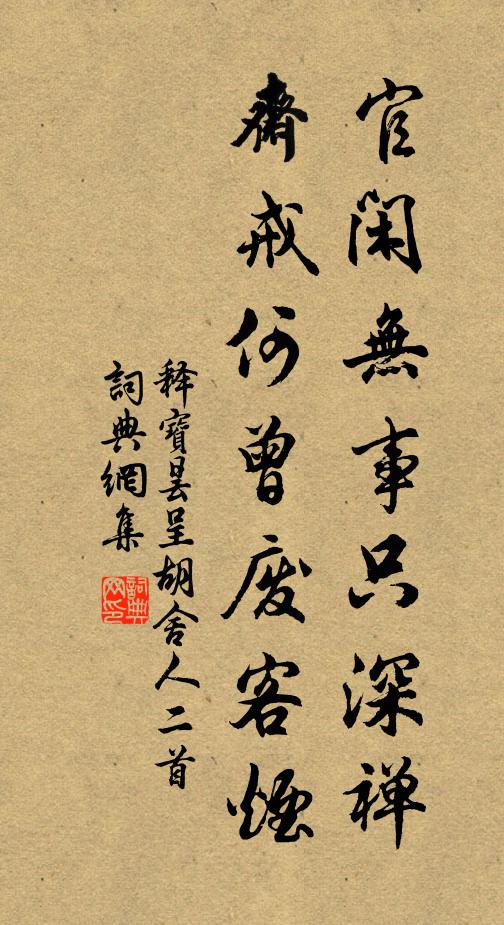 官閑無事只深禅
齋戒何曾廢客煙
释寶曇呈胡舍人二首
詞典網集
詞典网印